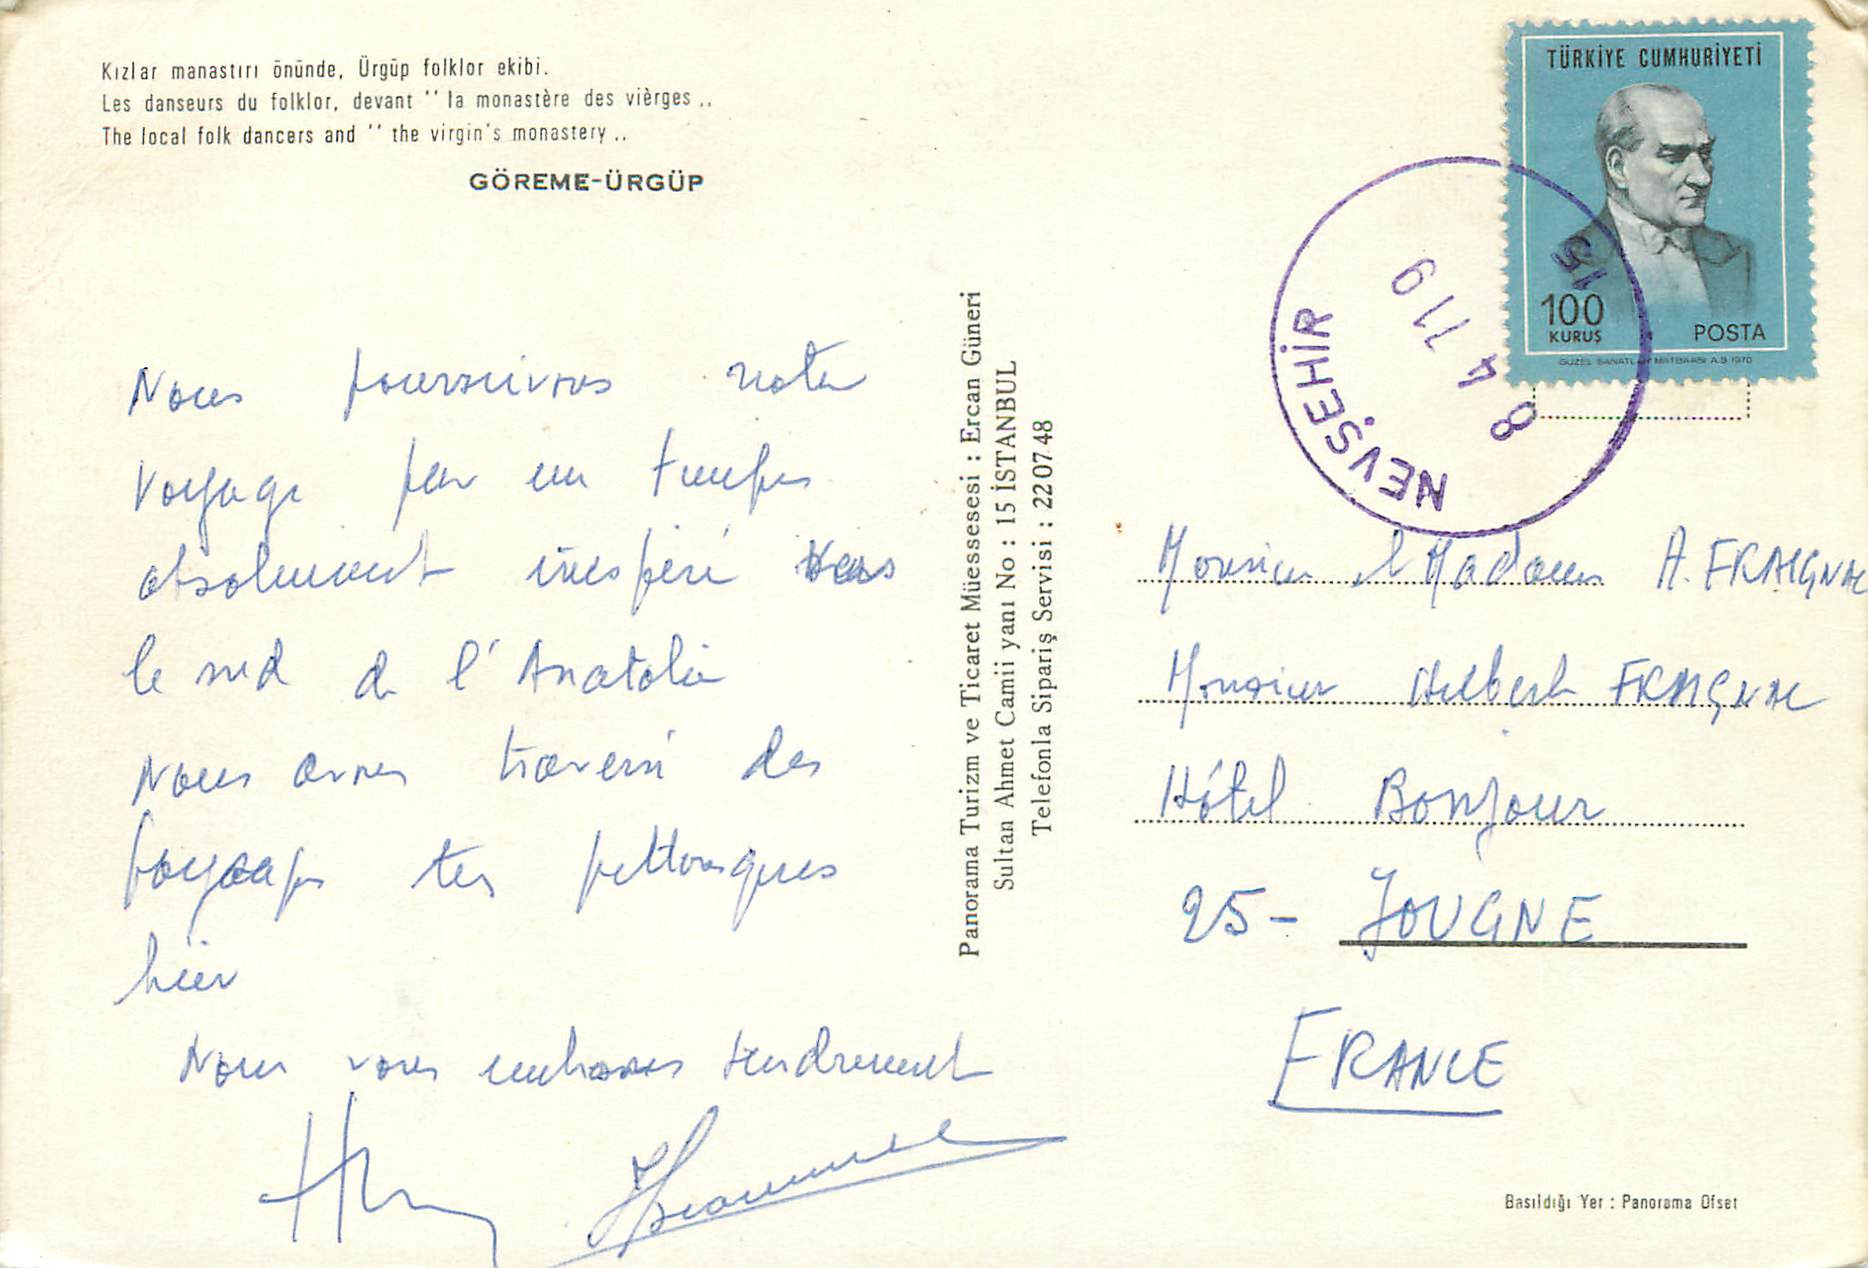 Kızlar manastırı önünde, Ürgüp folklor ekibi.
Les danseurs du folklor, devant '' la monastère des vièrges ,,
The local folk dancers and '' the virgin's monastery ,,
GÖREME-ÜRGÜP
Nous poursuivons notre
voyage par un temps
absolument inespéré vers
le sud de l'Anatolie
Nous avons traversé des
paysages très pittoresques
hier
Nous vous embrassons tendrement
Panorama Turizm ve Ticaret Müessesesi : Ercan Güneri
Sultan Ahmet Camii yanı No : 15 İSTANBUL
Telefonla Sipariş Servisi : 22 07 48
TÜRKİYE CUMHURİYETİ
100
KURUŞ
POSTA
GÜZEL SANATLAR MATBAASI A.Ş. 1970
NEVŞEHİR
8 4 71 9
15
Monsieur et Madame A. FRAIGNAC
Monsieur FRAIGNAC
Hôtel Bonjour
25- JOUGNE
FRANCE
Basıldığı Yer : Panorama Ofset